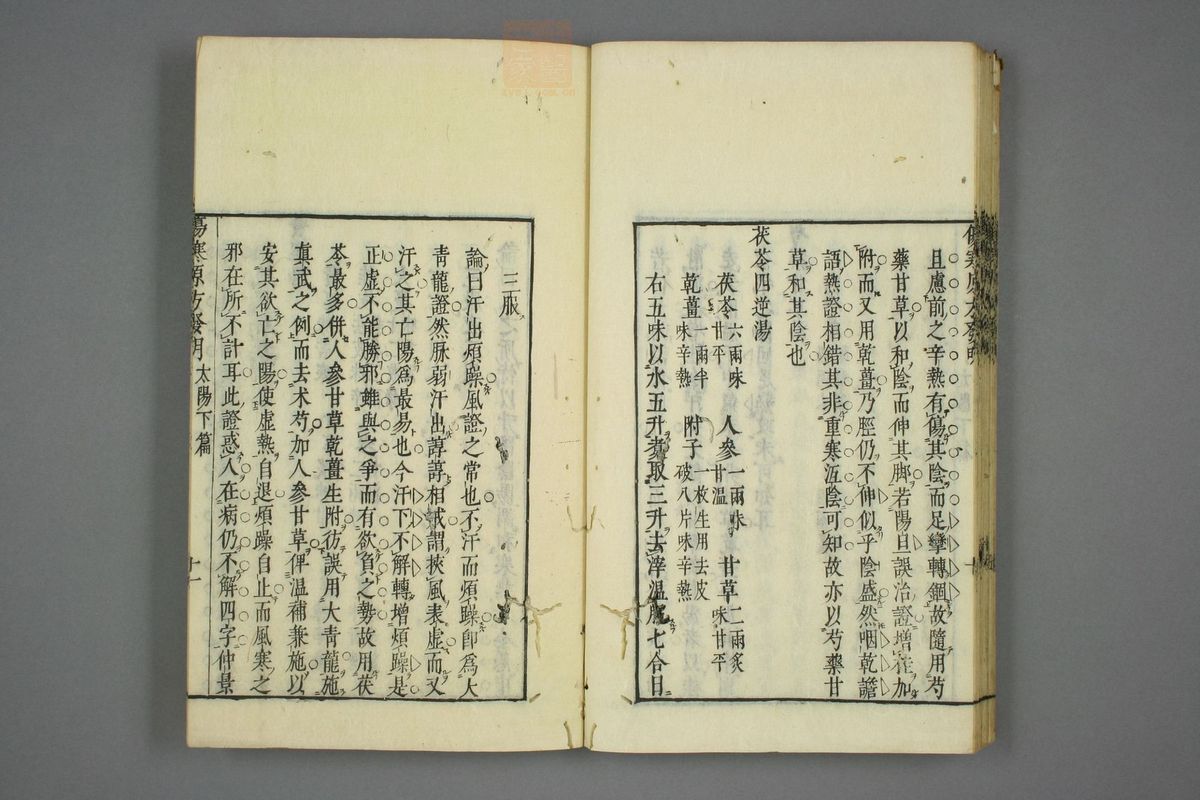 且慮前之辛熱有傷其陰而足攣轉錮故隨用芍
藥甘草以和陰而伸其脚若陽旦誤治證增桂加
附而又用乾薑乃脛仍不伸似乎陰盛然咽乾譫
語熱證相錯其非重寒沍陰可知故亦以芍藥甘
草和其陰也
茯苓四逆湯
茯苓六兩味甘平 人參一兩味甘溫 甘草二兩炙味甘平
乾薑一兩半味辛熱 附子一枚生用去皮破八片味辛熱
右五味以水五升煮取三升去滓溫服七合日
十
三服
論曰汗出煩躁風證之常也不汗而煩躁卽爲大
靑龍證然脉弱汗出諄諄相戒謂挾風表虛而又
汗之其亡陽爲最易也今汗下不解轉增煩躁是
正虛不能勝邪雖與之爭而有欲負之勢故用茯
苓最多併人參甘草乾薑生附彷誤用大靑龍施
眞武之例而去术芍加人參甘草俾溫補兼施以
安其欲亡之陽使虛熱自退煩躁自止而風寒之
邪在所不計耳此證惑人在病仍不解四字仲景
傷寒原方發明 太陽下篇 十一